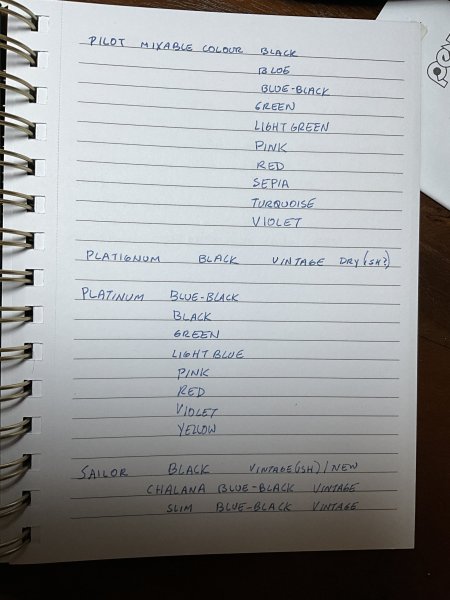 PILOT MIXABLE COLOUR BLACK
BLUE
BLUE-BLACK
GREEN
LIGHT GREEN
PINK
RED
SEPIA
TURQUOISE
VIOLET
PLATIGNUM BLACK VINTAGE DRY(ISH?)
PLATINUM BLUE-BLACK
BLACK
GREEN
LIGHT BLUE
PINK
RED
VIOLET
YELLOW
SAILOR BLACK VINTAGE(ISH)/NEW
CHALANA BLUE-BLACK VINTAGE
SLIM BLUE-BLACK VINTAGE